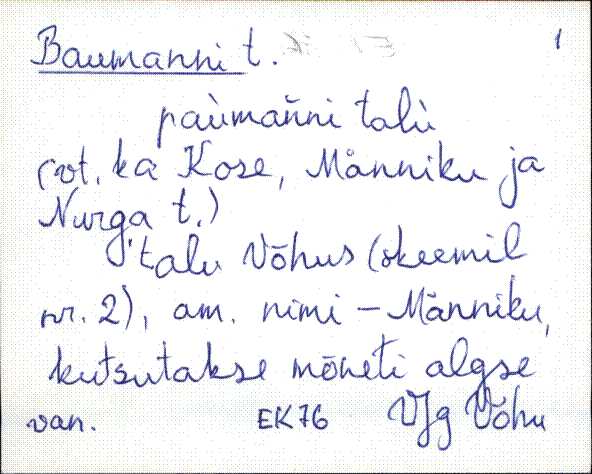 Baumanni t. 1
paùmañni talù
(vt. ka Kose, Männiku ja
Nurga t.)
talu Võhus (skeemil
nr. 2), am. nimi – Männiku,
kutsutakse mõneti algse
van. EK76 VJg Võhu